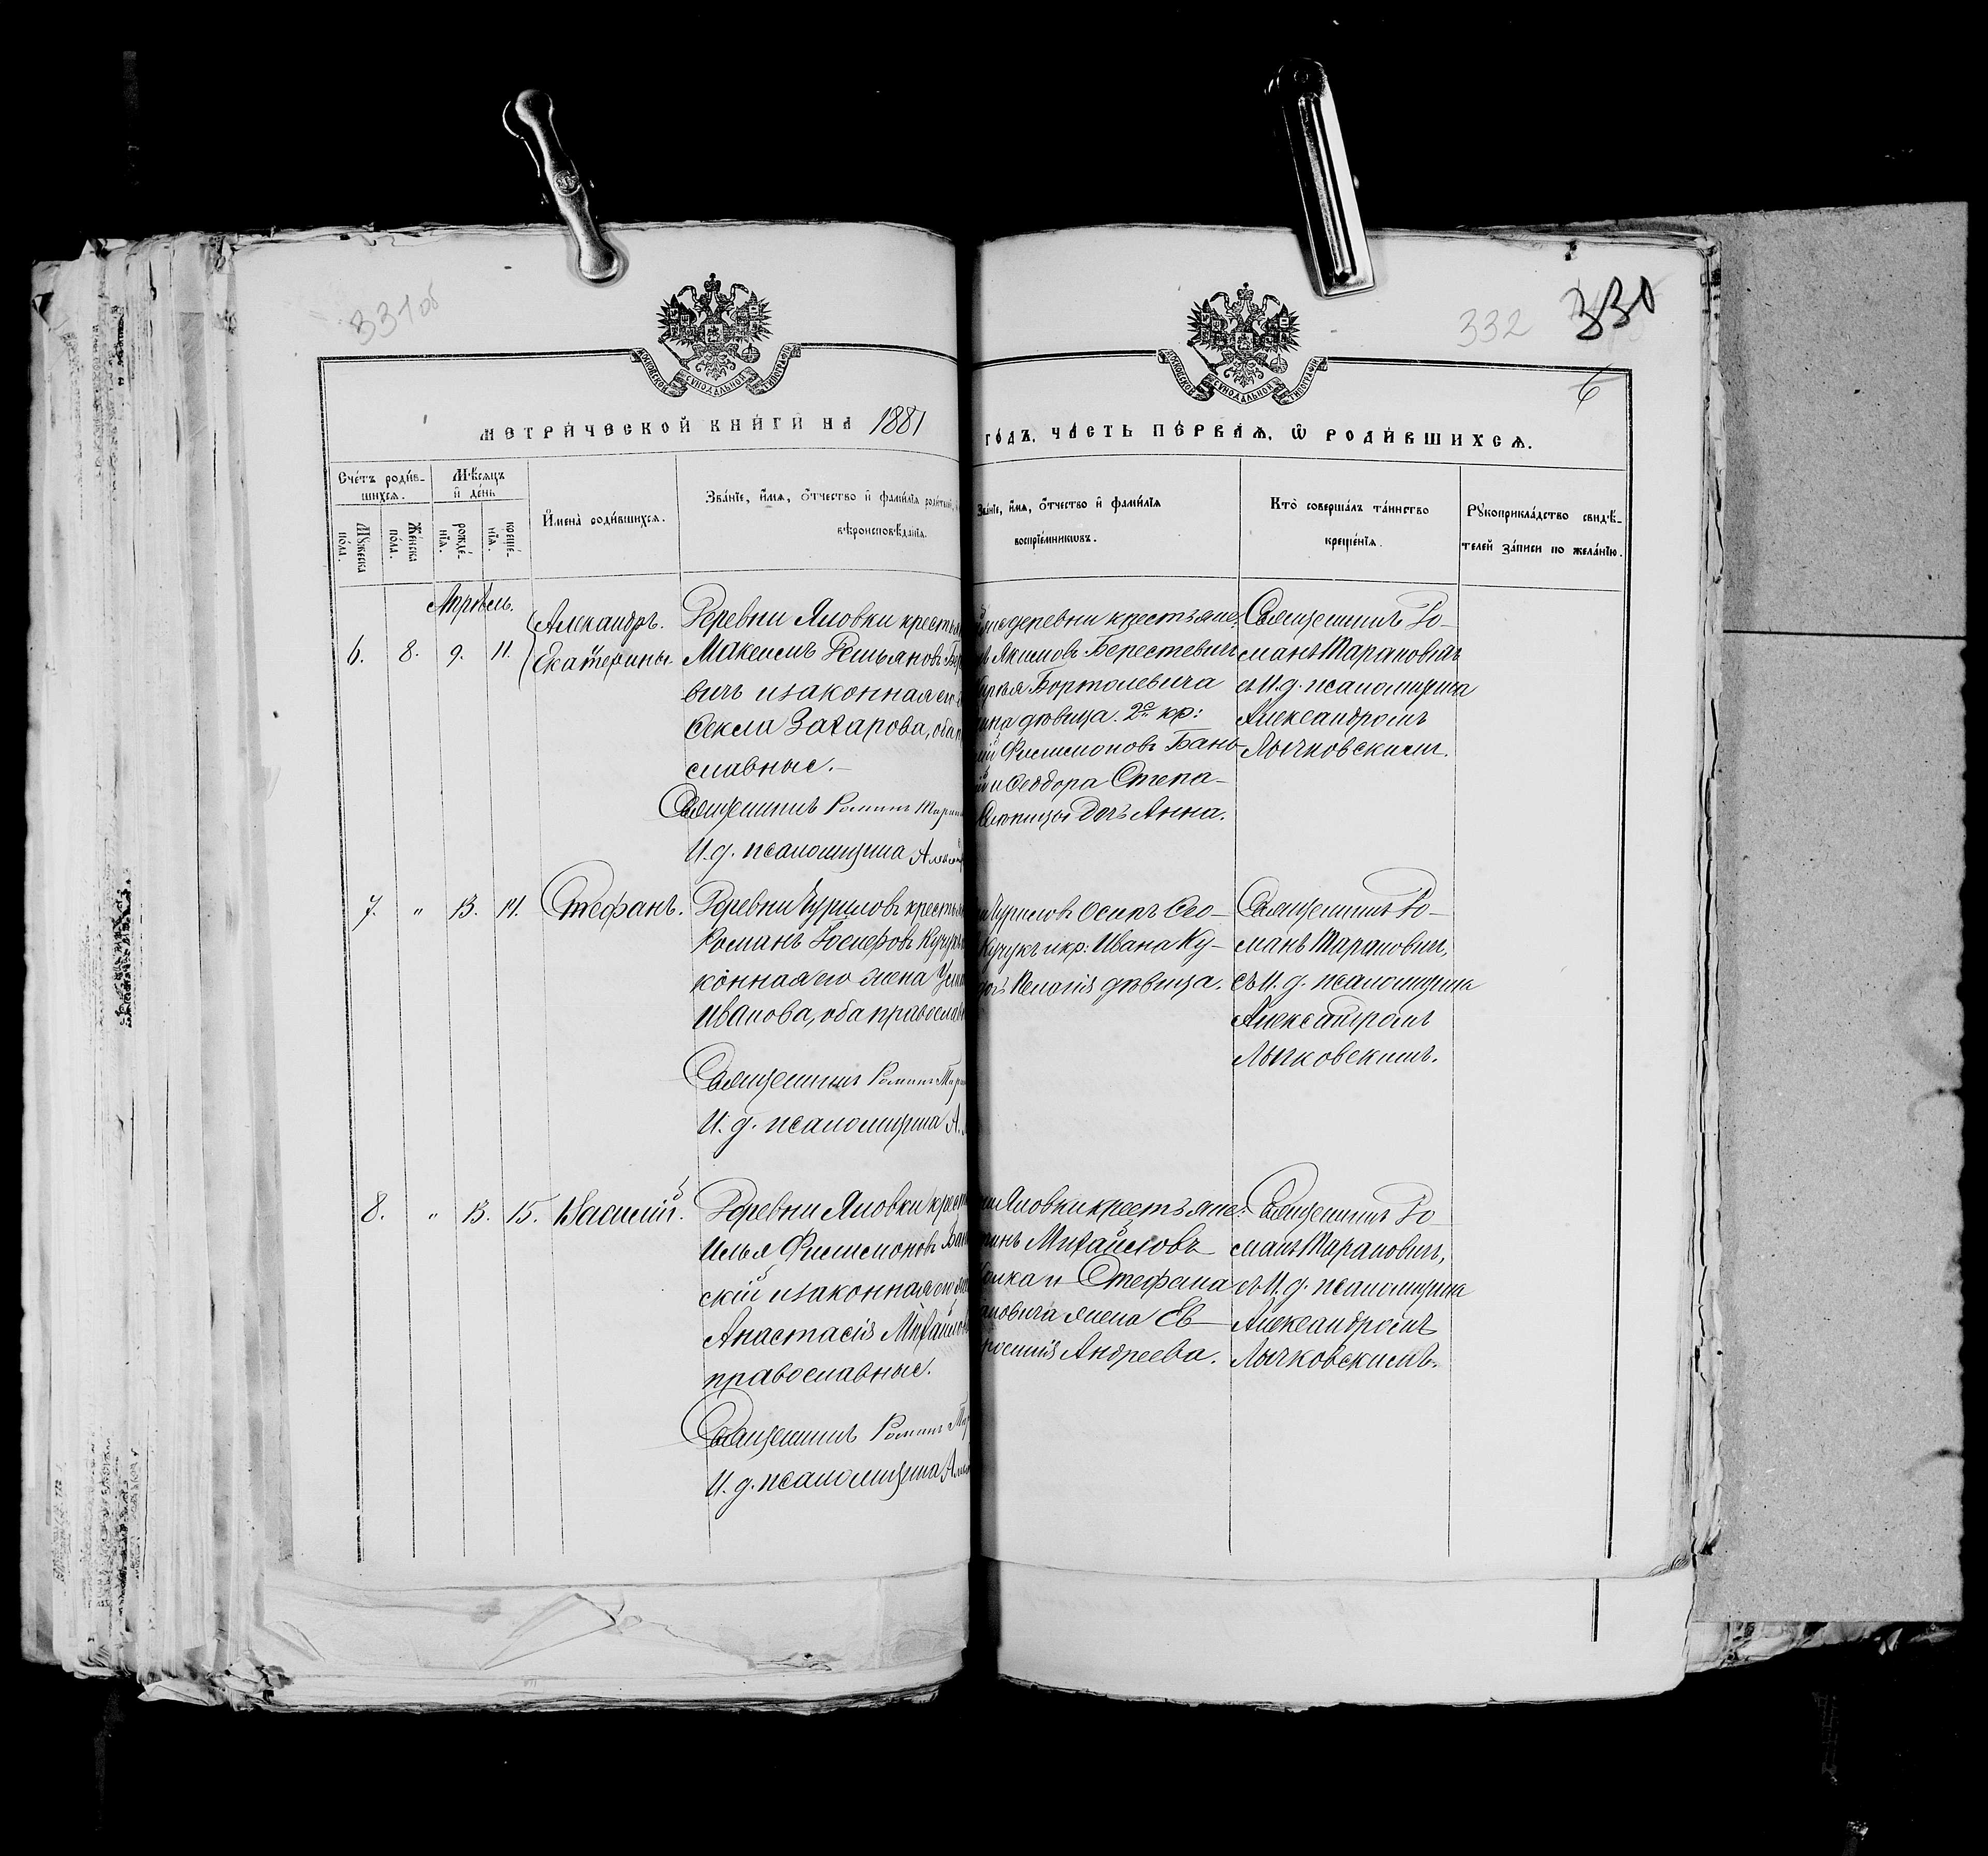 331 об
332
330
6
МОСКОВСКОЙ СѴНОДАЛЬНОЙ ТИПОГРАФІИ
МОСКОВСКОЙ СѴНОДАЛЬНОЙ ТИПОГРАФІИ
МЕТРИ́ЧЕСКОЙ КНИ́ГИ НА 1881
ГО́ДЪ, ЧА́СТЬ ПЕ́РВАѦ, Ѡ РОДИ́ВШИХСѦ.
Сче́тъ роди́в-
шихсѧ.
Мѣсѧцъ
и҆ де́нь
Мꙋжеска
по́ла.
Же́нска
по́ла.
рожде́-
нїѧ.
креще́-
нїѧ.
И҆мена̀ роди́вшихсѧ.
Зва́нїе, и҆́мѧ, ѻ҆́тчество и҆ фами́лїѧ роди́телей,
вѣроисповѣ́данїѧ.
Зва́нїе, и҆́мѧ, ѻ҆́тчество и҆ фами́лїѧ
воспрїе́мникѡвъ.
Кто̀ соверша́лъ та́инство
креще́нїѧ.
Рꙋкоприкла́дство свидѣ́-
телей за́писи по жела́нїю.
Апрѣль.
6. 8. 9. 11.
Александръ.
Екатерина.
Деревни Яловки крестья
Максимъ Демьяновъ Бер
вичъ и законная его
Ѳекла Захарова, оба п
славные.—
Священникъ Романъ Таран
И. д. псаломщика Алек
деревни крестьяне:
Якимовъ Берестевичъ
Бортолевича
дѣвица. 2е. кр:
Филимоновъ Бань-
и Ѳеодора Степа-
дочь Анна.
Священникъ Ро-
манъ Тарановичъ
съ И. д. псаломщика
Александромъ
Лычковскимъ.
7. " 13. 14. Стефанъ.
Деревни Чурилов крестья
Романъ Іосифовъ Кучук
конная его жена Усти
Иванова, оба православн
Священникъ Романъ Таран
И. д. псаломщика А.
Чурилов Осипъ Ѳео-
Кучукъ и кр: Ивана Ку-
Пелагія дѣвица.
Священникъ Ро-
манъ Тарановичъ,
съ И. д. псаломщика
Александромъ
Лычковскимъ.
8. " 13. 15. Василій.
Деревни Яловки крест
Илья Филимоновъ Бань
скій и законная его же
Анастасія Михайлов
православные.
Священникъ Романъ Тар
И. д. псаломщика Алек
Яловки крестьяне:
Михайловъ
и Стефана
жена Ев-
Андреева.
Священникъ Ро-
манъ Тарановичъ,
съ И. д. псаломщика
Александромъ
Лычковскимъ.